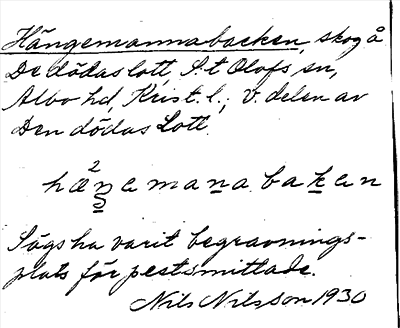 Hängemannabacken, skog å
De dödas lott, S:t Olofs sn,
Albo hd, Krist. l.; V. delen av
Den dödas Lott.
hä²ŋemana bakən
Sägs ha varit begravnings-
plats för pestsmittade.
Nils Nilsson 1930